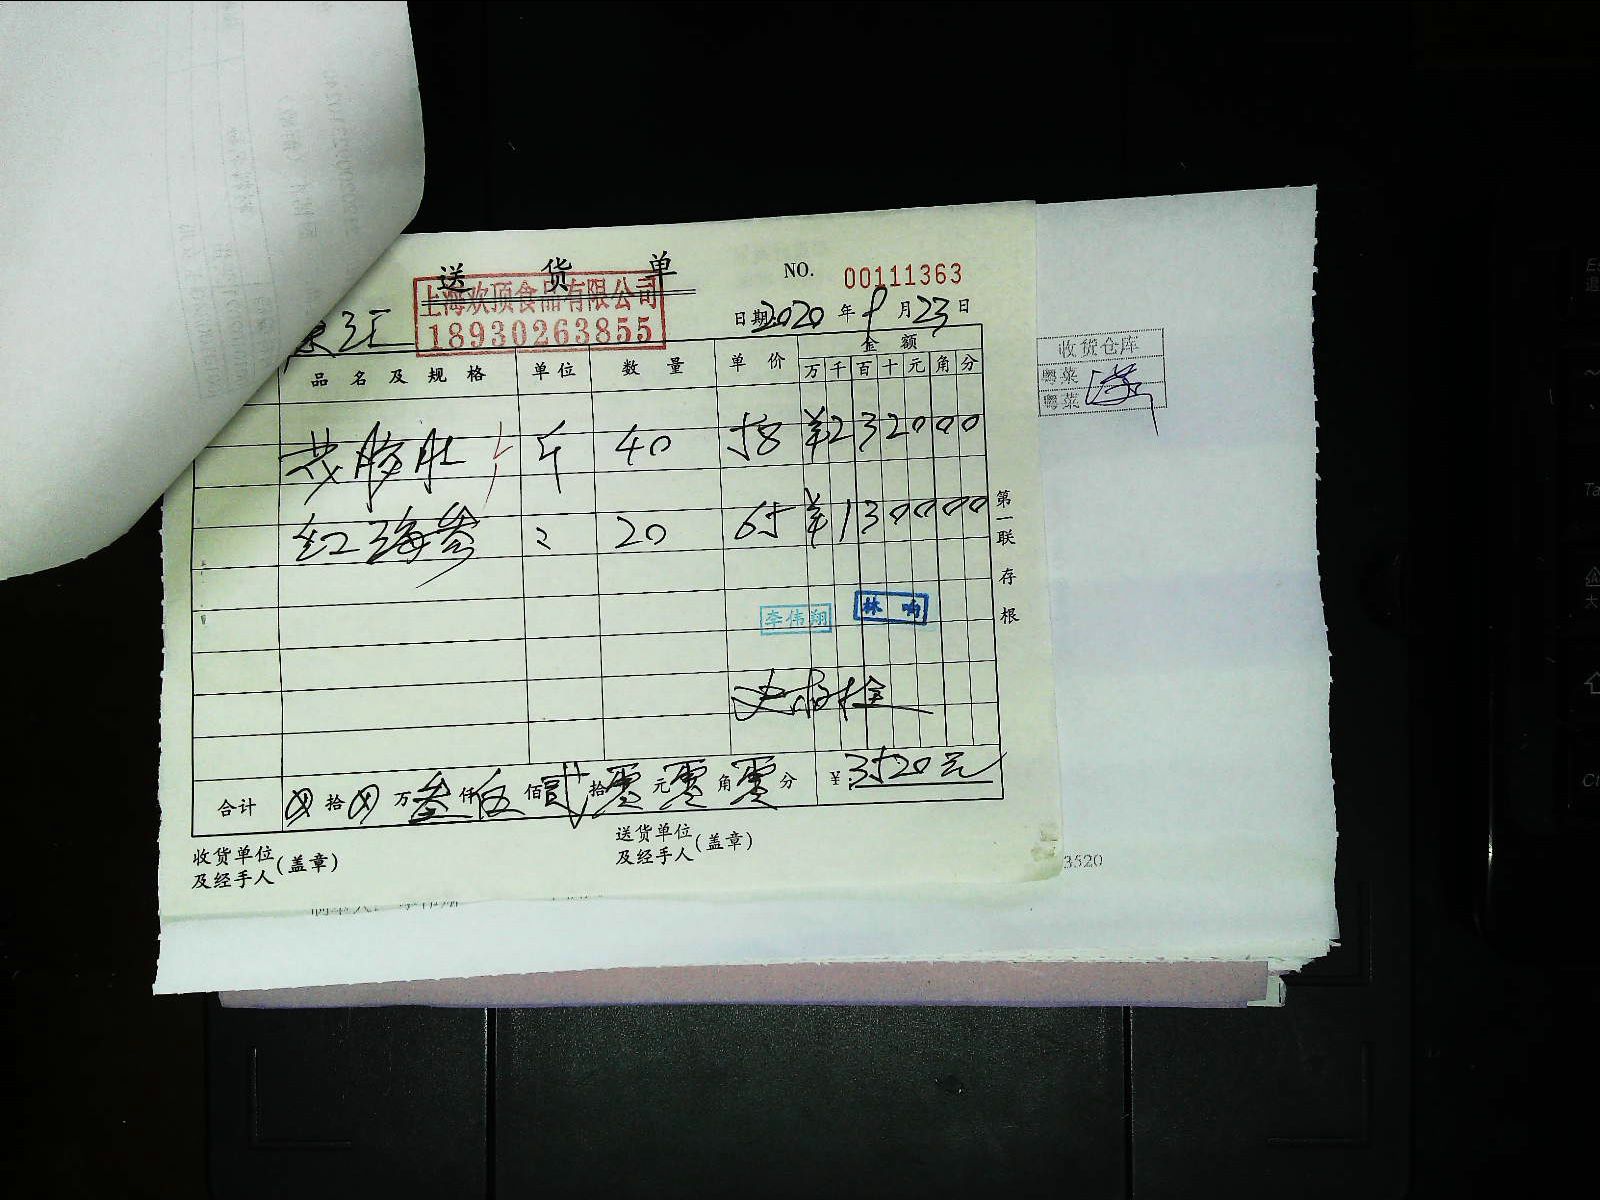 送货单 NO. 00111363
上海欢顶食品有限公司
18930263855
日期 2020 年 9 月 23 日
品名及规格 单位 数量 单价 金额
万 千 百 十 元 角 分
斤 40 58 ¥232000
红海参 〃 20 65 ¥130000
李伟翔 林响
合计 ⊗ 拾 ⊗ 万 叁 仟 伍 佰 贰 拾 零 元 零 角 零 分 ¥: 3520元
收货单位及经手人(盖章)
送货单位及经手人(盖章)
第一联存根
收货仓库
粤菜
粤菜
3520